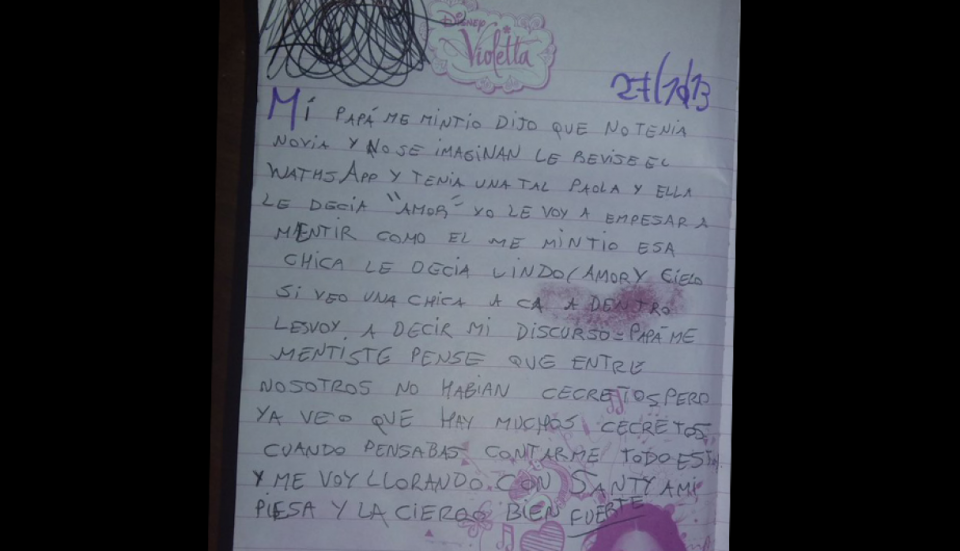 Disney
Violetta
27/10/13
Mí PAPÁ ME MINTIO DIJO QUE NO TENIA
NOVIA Y NO SE IMAGINAN LE REVISE EL
WATHSAPP Y TENIA UNA TAL PAOLA Y ELLA
LE DECIA "AMOR" YO LE VOY A EMPESAR A
MENTIR COMO EL ME MINTIO ESA
CHICA LE DECIA LINDO(AMOR Y CIELO
SI VEO UNA CHICA A CA A DENTRO
LESVOY A DECIR MI DISCURSO=PAPÁ ME
MENTISTE PENSE QUE ENTRE
NOSOTROS NO HABIAN CECRETOS PERO
YA VEO QUE HAY MUCHOS CECRETOS
CUANDO PENSABAS CONTARME TODO ESTO
Y ME VOY LLORANDO. CON SANTY A MI
PIESA Y LA CIERRO BIEN FUERTE